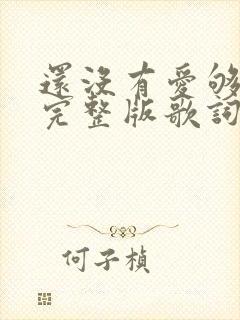 還沒有愛够
完整版歌詞
何子楨